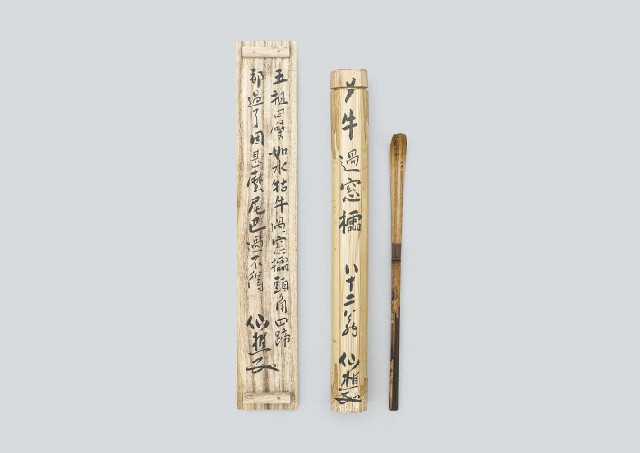 五祖曰譬如水牯牛過窓櫺頭角四蹄
都過了因甚麼尾巴過不得 仙樵
〆 牛過窓櫺 八十二翁 仙樵